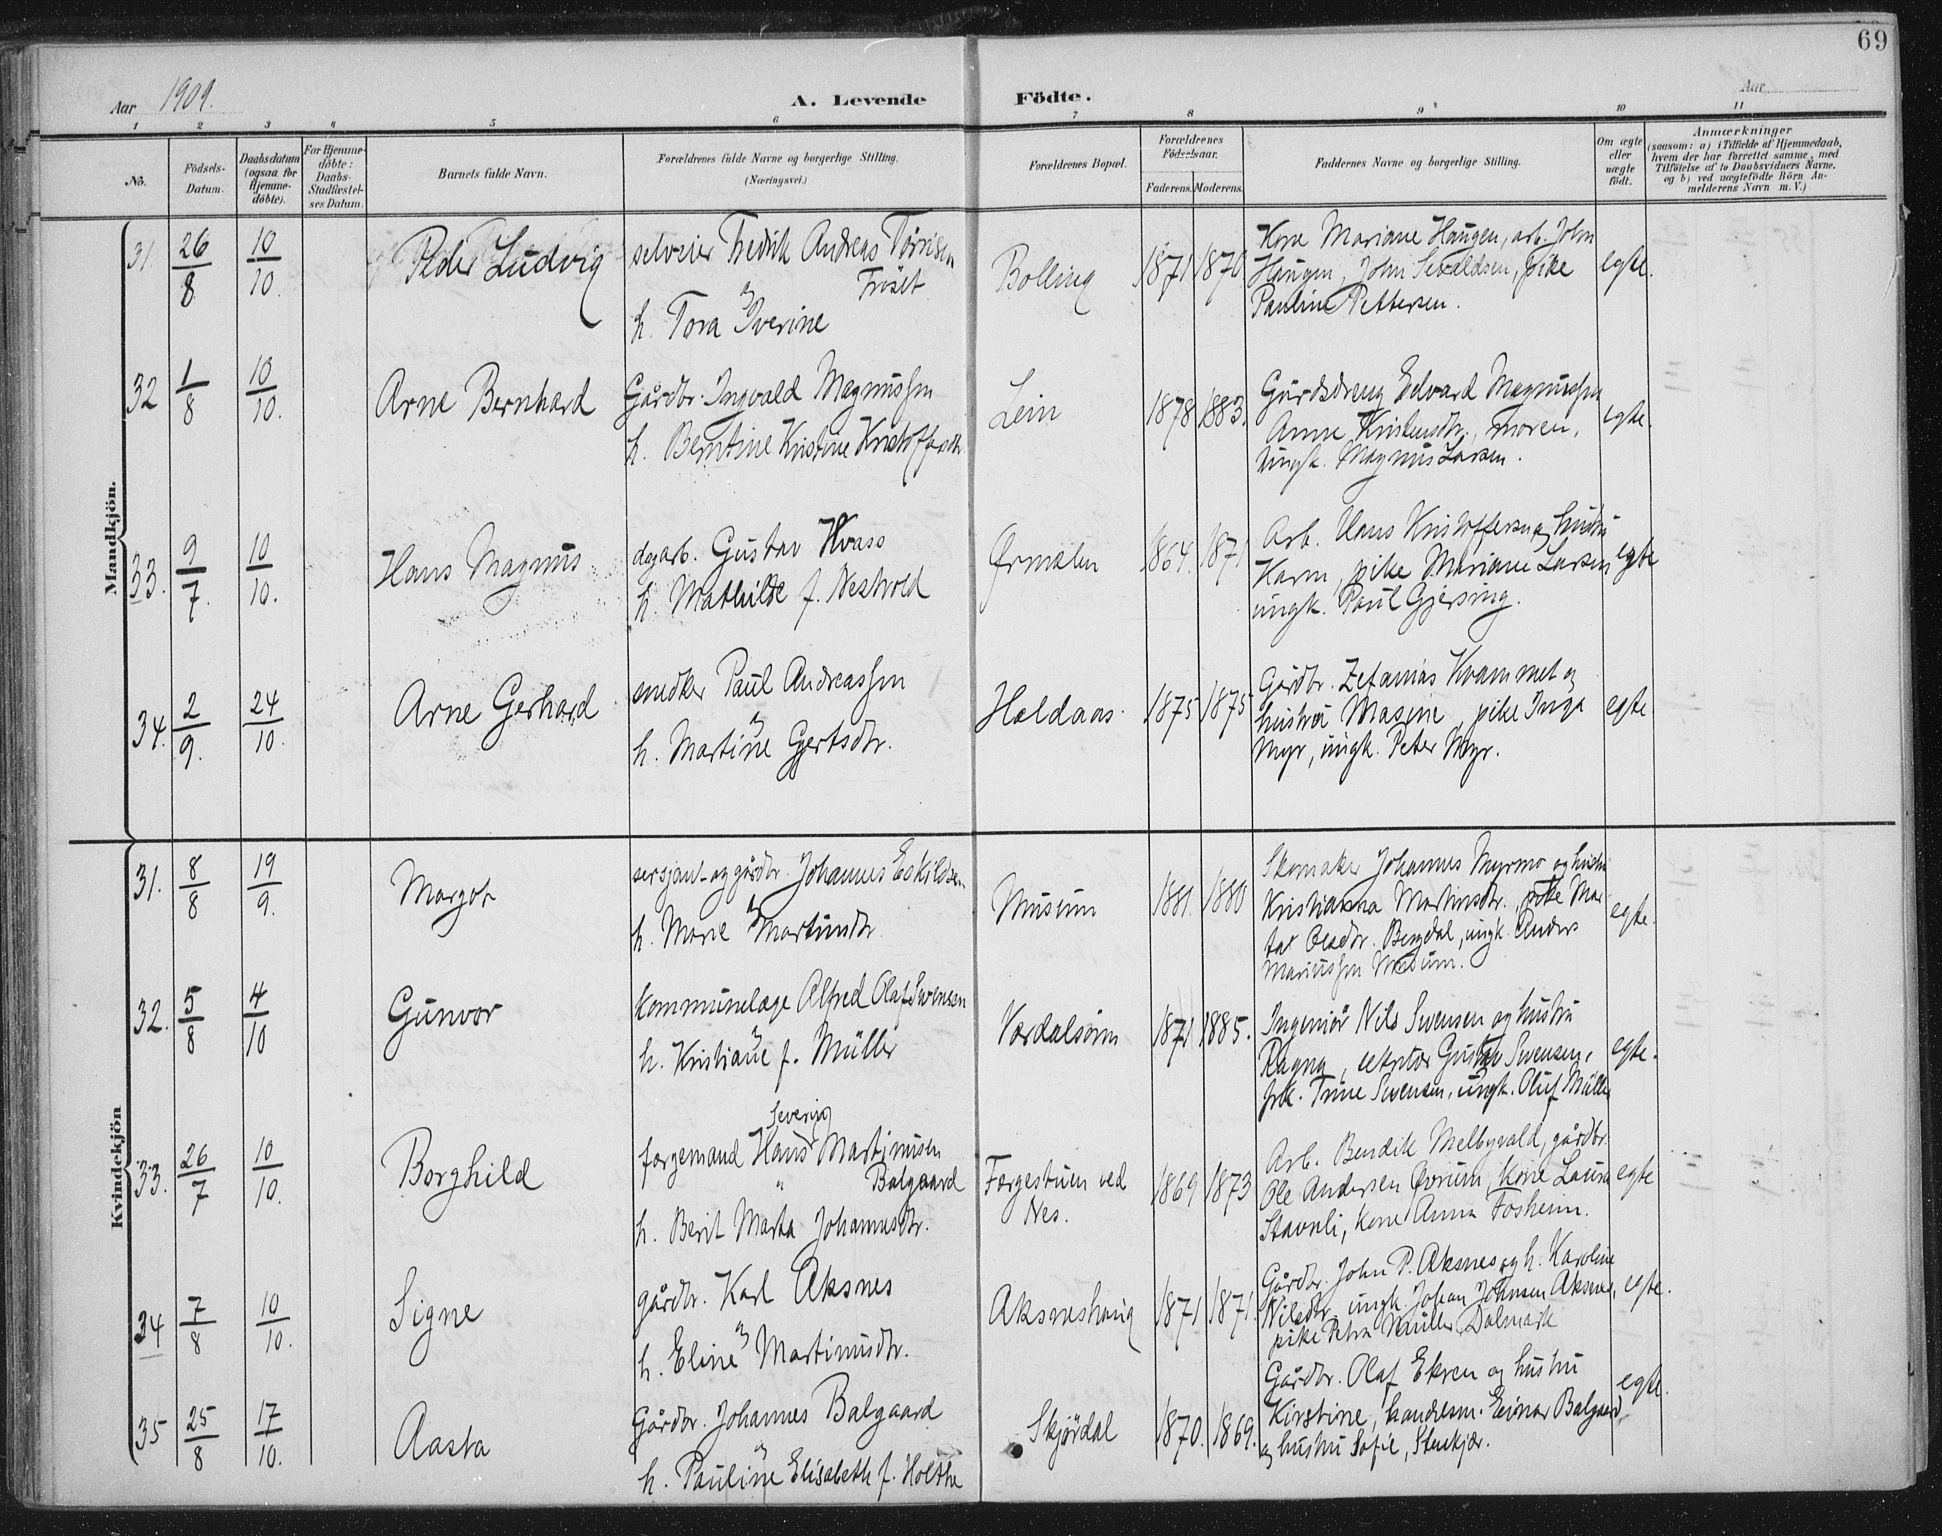 69
Aar 1909.
A. Levende Födte.
Aar
1 2 3 4 5 6 7 8 9 10 11
No.
Födsels-Datum.
Daabsdatum (ogsaa for Hjemme-döbte).
For Hjemme-döbte: Daabs-Stadfæstel-ses Datum.
Barnets fulde Navn.
Forældrenes fulde Navne og borgerlige Stilling.
(Næringsvei.)
Forældrenes Bopæl.
Forældrenes Födselsaar.
Faderens. Moderens.
Faddernes Navne og borgerlige Stilling.
Om ægte eller uægte födt.
Anmærkninger
(saasom: a) i Tilfælde af Hjemmedaab,
hvem der har forrettet samme, med
Tilföielse af to Daabsvidners Navne.
og b) ved uægtefödte Börn An-
melderens Navn m. V.)
Mandkjön.
31. 26/8 10/10. Peder Ludvig
selveier Fredrik Andreas Tørrisen
Frøset
h. Tora Iverine
Bolling 1871 1870
Kone Mariane Haugen, arb. John
Haugen, John Sevaldsen, pike
Pauline Pettersen.
egte.
32 1/8 10/10. Arne Bernhard
Gårdbr. Ingvald Magnussen
h. Berntine Kristine Kristoffersdtr.
Lein 1878 1883.
Gårdsdreng Edvard Magnussen
Anne Kristensdtr., moren,
ungk. Magnus Larsen.
egte.
33. 9/7. 10/10. Hans Magnus
dagarb. Gustav Kvass
h. Mathilde f. Nestvold
Ørmelen 1864. 1871
Arb. Hans Kristoffersen og hustru
Karen, pike Mariane Larsen
ungk. Paul Gjersing.
egte
34. 2/9. 24/10. Arne Gerhard
snedker Paul Andreassen
h. Martine Gjertsdtr.
Haldaas. 1875 1875
Gårdbr. Zefanias Kvammet og
hustru Masine, pike Inga
Myr, ungk. Peter Myr.
egte
Kvindekjön
31. 8/8 19/9. Margot
sersjant og gårdbr. Johannes Eskildsen
h. Marie Martinsdtr.
Musum 1881. 1880
Skomaker Johannes Myrmo og hustru
Kristianna Martinsdtr., pike Mar-
ta Olsdtr. Bergdal, ungk. Anders
Mariussen Musum.
egte.
32. 5/8 4/10 Gunvor
kommunelæge Alfred Olaf Svensen
h. Kristiane f. Müller
Værdalsøren 1871 1885.
Ingeniør Nils Svensen og hustru
Ragna, Gustav Svensen,
frk. Trine Svensen, ungk. Oluf Müller
egte.
33. 26/7 10/10. Borghild
Severin
færgemand Hans Martinusen
" Balgaard
h. Berit Marta Johannesdtr.
Færgestuen ved
Nes.
1869 1873
Arb. Bendik Melbyvald, gårdbr.
Ole Andersen Øvrum, kone Laura
Stavnli, kone Anna Fosheim.
egte
34 7/8 10/10. Signe
gårdbr. Karl Aksnes
h. Eline Martinusdtr.
Aksneshaug 1871 1871.
Gårdbr. John P. Aksnes og h. Karoline
Nilsdtr., ungk. Johan Johnsen Aksnes,
pike Petra Müller Dalmark
egte.
35 25/8 17/10. Aasta
Gårdbr. Johannes Balgaard
h. Pauline Elisabeth f. Holthe
Skjørdal 1870. 1869.
Gårdbr. Olaf Ekren og hustru
Kirstine, handelsm. Einar Balgaard
og hustru Sofie, Stenkjær.
egte.